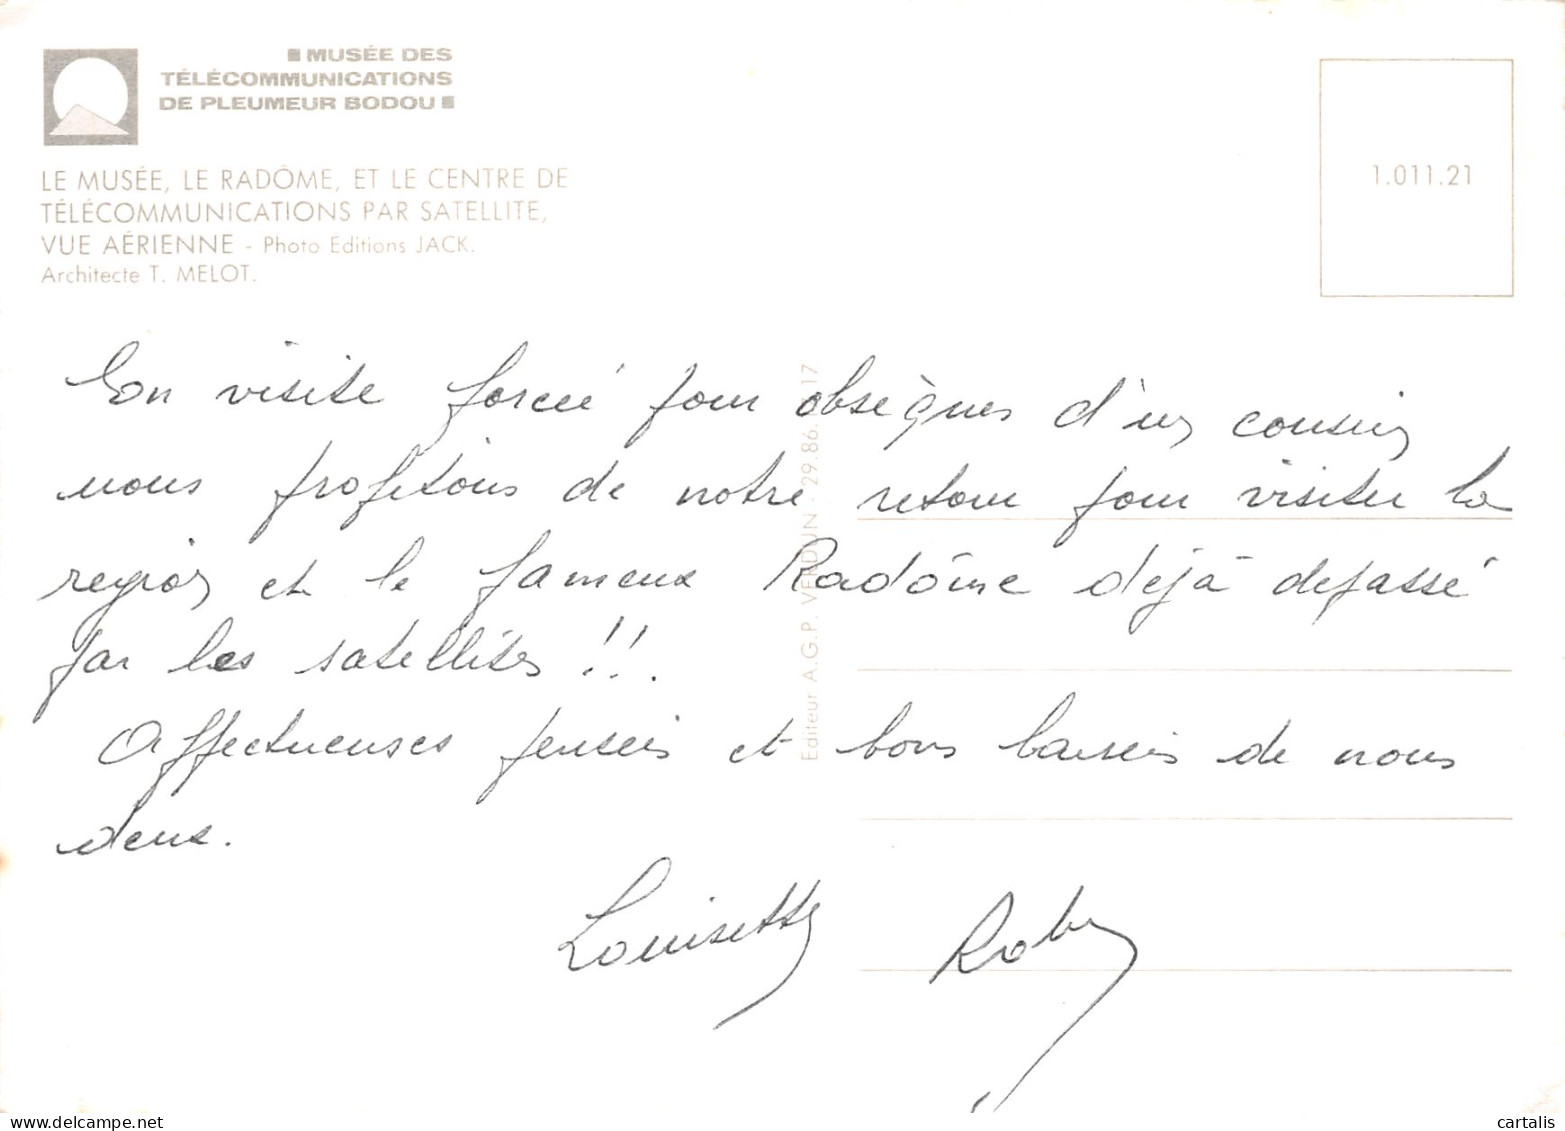 ■ MUSÉE DES
TÉLÉCOMMUNICATIONS
DE PLEUMEUR BODOU ■
LE MUSÉE, LE RADÔME, ET LE CENTRE DE
TÉLÉCOMMUNICATIONS PAR SATELLITE,
VUE AÉRIENNE - Photo Editions JACK.
Architecte T. MELOT.
1.011.21
En visite forcée pour obsèques d'un cousin
nous profitons de notre retour pour visiter la
region et le fameux Radôme dejà depassé
par les satellites !!.
Affectueuses pensées et bons baisers de nous
deux.
Louisette
Editeur A.G.P. VERDUN - 29.86. 17
cartalis